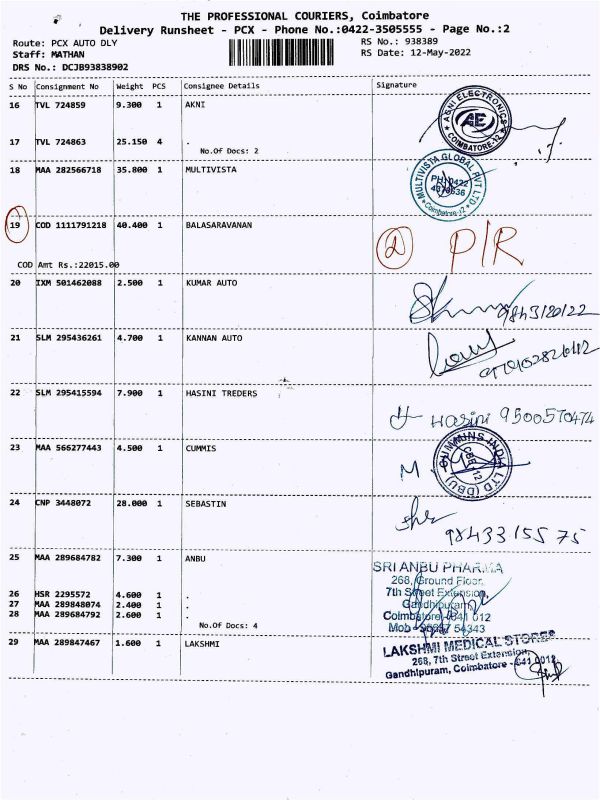 THE PROFESSIONAL COURIERS, Coimbatore
Delivery Runsheet - PCX - Phone No.:0422-3505555 - Page No.:2
Route: PCX AUTO DLY RS No.: 938389
Staff: MATHAN RS Date: 12-May-2022
DRS No.: DCJB93838902
S No Consignment No Weight PCS Consignee Details Signature
16 TVL 724859 9.300 1 AKNI
AKNI ELECTRONICS
AE
COIMBATORE-12
17 TVL 724863 25.150 4 .
No.Of Docs: 2
18 MAA 282566718 35.800 1 MULTIVISTA
MULTIVISTA GLOBAL PVT LTD
Coimbatore-12
19 COD 1111791218 40.400 1 BALASARAVANAN
P/R
COD Amt Rs.:22015.00
20 IXM 501462088 2.500 1 KUMAR AUTO
21 SLM 295436261 4.700 1 KANNAN AUTO
22 SLM 295415594 7.900 1 HASINI TREDERS
Hasini 9500570474
23 MAA 566277443 4.500 1 CUMMIS
CUMMINS INDIA LTD (DBU)
CBE-12
24 CNP 3448072 28.000 1 SEBASTIN
9843315575
25 MAA 289684782 7.300 1 ANBU
SRI ANBU PHARMA
268, Ground Floor,
7th Street Extension,
Gandhipuram,
Coimbatore-641 012
26 HSR 2295572 4.600 1 .
27 MAA 289848074 2.400 1 .
28 MAA 289684792 2.600 1 .
No.Of Docs: 4
29 MAA 289847467 1.600 1 LAKSHMI
LAKSHMI MEDICAL STORES
268, 7th Street Extension,
Gandhipuram, Coimbatore - 641 0012